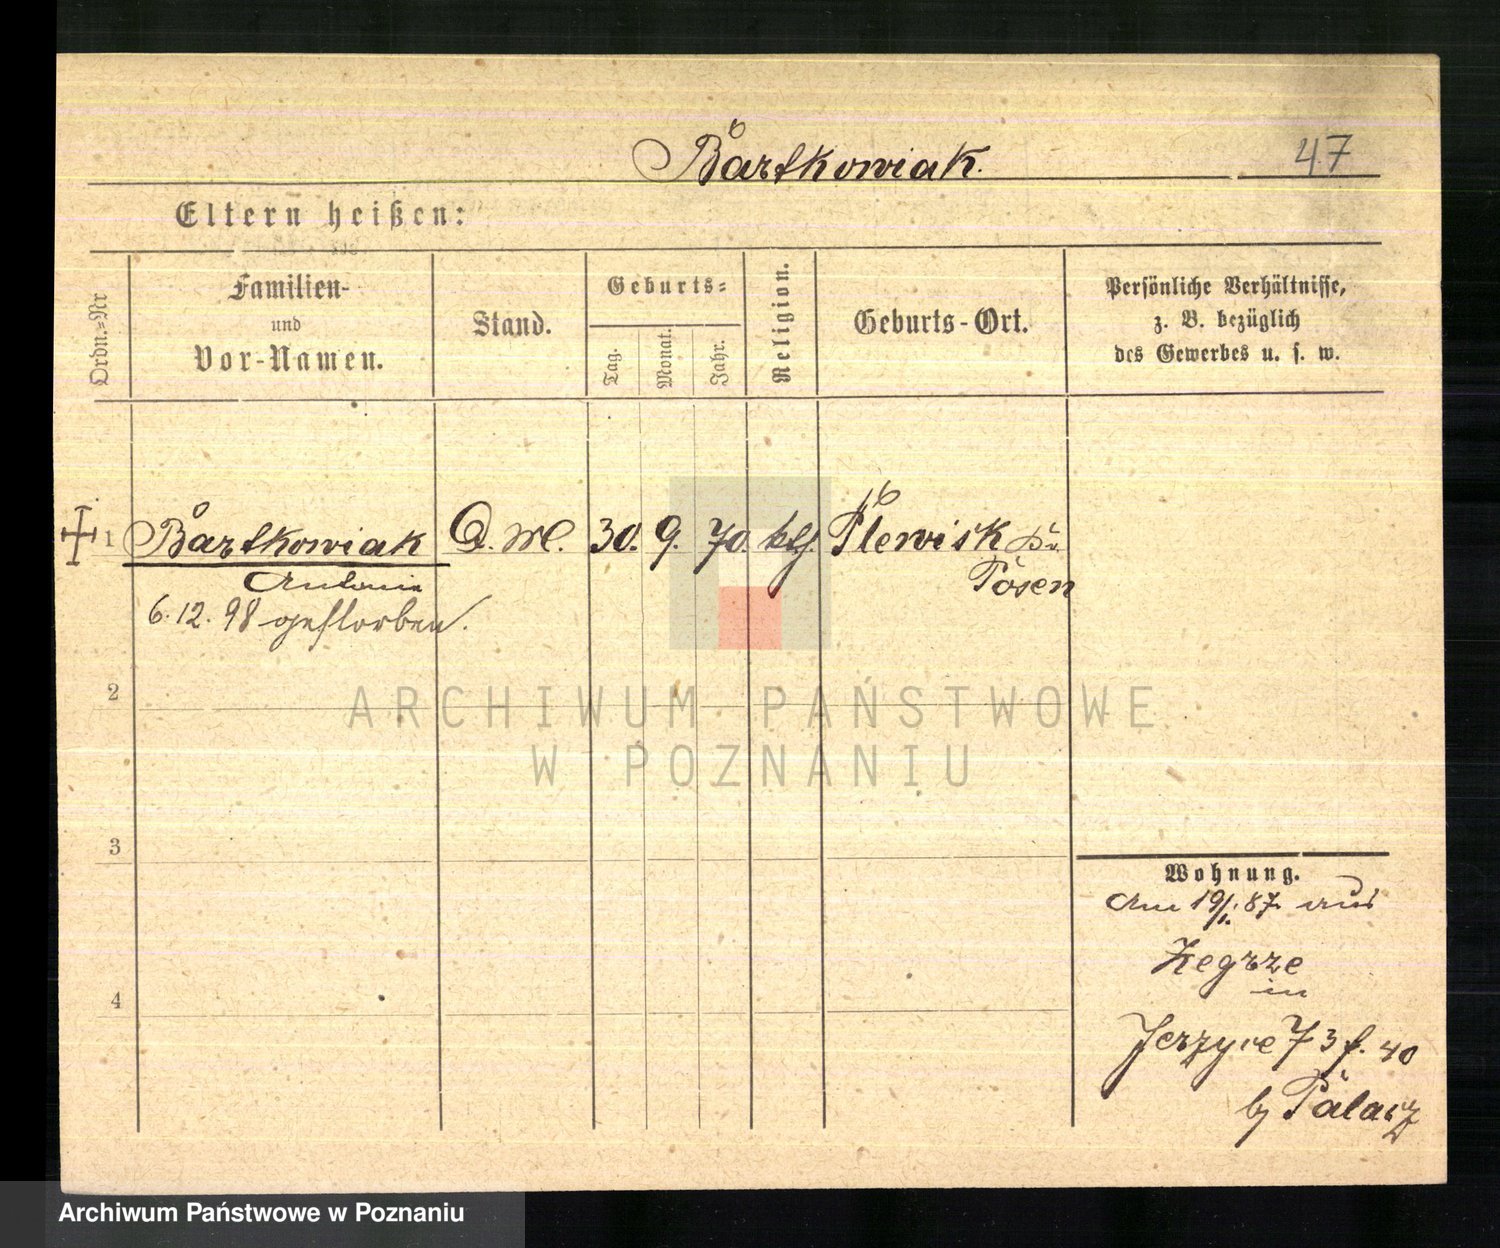 Bartkowiak. 47
Eltern heißen:
Ordn.=Nr
Familien-
und
Vor-Namen.
Stand.
Geburts=
Tag.
Monat.
Jahr.
Religion.
Geburts-Ort.
Persönliche Verhältnisse,
z. B. bezüglich
des Gewerbes u. s. w.
1 Bartkowiak D. M. 30. 9. 70. kth. Plewisk Kr.
Posen
Antonie
6. 12. 98 gestorben.
2
ARCHIWUM PAŃSTWOWE
W POZNANIU
3
Wohnung.
Am 19/1. 87. aus
Zegrze
in
4
Jerzyce 73 f. 40
by Palacz
Archiwum Państwowe w Poznaniu